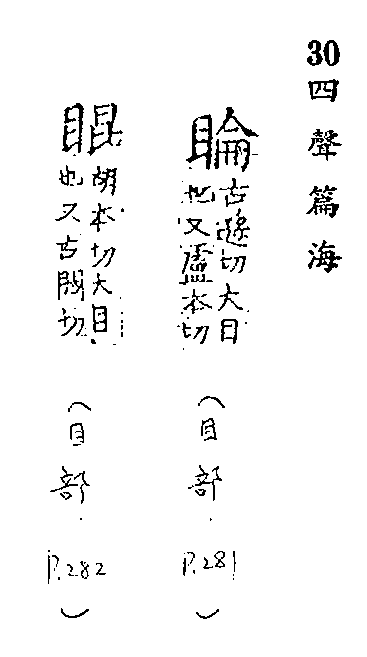 30四聲篇海
睔
古遜切大目
也又盧本切
(目部.P.281)
胡本切大目
也又古切
(目部.P.282)